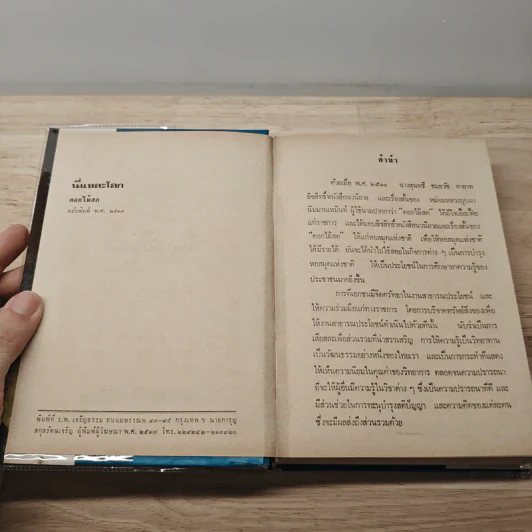 นี่แหละโลก
ดอกไม้สด
ฉบับพิมพ์ พ.ศ.
พิมพ์ที่ ร.พ. เจริญธรรม ถนนมหรรณพ กรุงเทพ ฯ นายการุญ
สกุลรัตนเจริญ ผู้พิมพ์ผู้โฆษณา พ.ศ. โทร.
คำนำ
ด้วยเมื่อ พ.ศ. ๒๕๑๑ ทายาท
ลิขสิทธิ์หนังสือนวนิยาย และเรื่องสั้นของ หม่อมหลวงบุปผา
นิมมานเหมินท์ ผู้ใช้นามปากกาว่า "ดอกไม้สด" ได้มี
แก่ราชการ และได้มอบลิขสิทธิ์หนังสือนวนิยายและเรื่องสั้นของ
"ดอกไม้สด" ให้แก่หอสมุดแห่งชาติ เพื่อให้หอสมุดแห่งชาติ
ได้มีรายได้ อันจะได้นำไปใช้สอยในกิจการต่าง ๆ เป็นการบำรุง
หอสมุดแห่งชาติ ให้เป็นประโยชน์ในการศึกษาหาความรู้ของ
ประชาชนมากยิ่งขึ้น
การที่เอกชนมีจิตศรัทธาในงานสาธารณประโยชน์ และ
ให้ความร่วมมือแก่ทางราชการ โดยการบริจาคทรัพย์สิ่งของเพื่อ
ให้งานสาธารณประโยชน์ดำเนินไปด้วยดีนั้น นับว่าเป็นการ
เสียสละเพื่อส่วนรวมที่น่าสรรเสริญ การให้ความรู้เป็นวิทยาทาน
เป็นวัฒนธรรมอย่างหนึ่งของไทยเรา และเป็นการกระทำที่แสดง
ให้เห็นความนิยมในคุณค่าของวิทยาการ ตลอดจนความปรารถนา
ที่จะให้ผู้อื่นมีความรู้ในวิชาต่าง ๆ ซึ่งเป็นความปรารถนาที่ดี และ
มีส่วนช่วยในการทะนุบำรุงสติปัญญา และความคิดของแต่ละคน
ซึ่งจะมีผลส่งถึงส่วนรวมด้วย